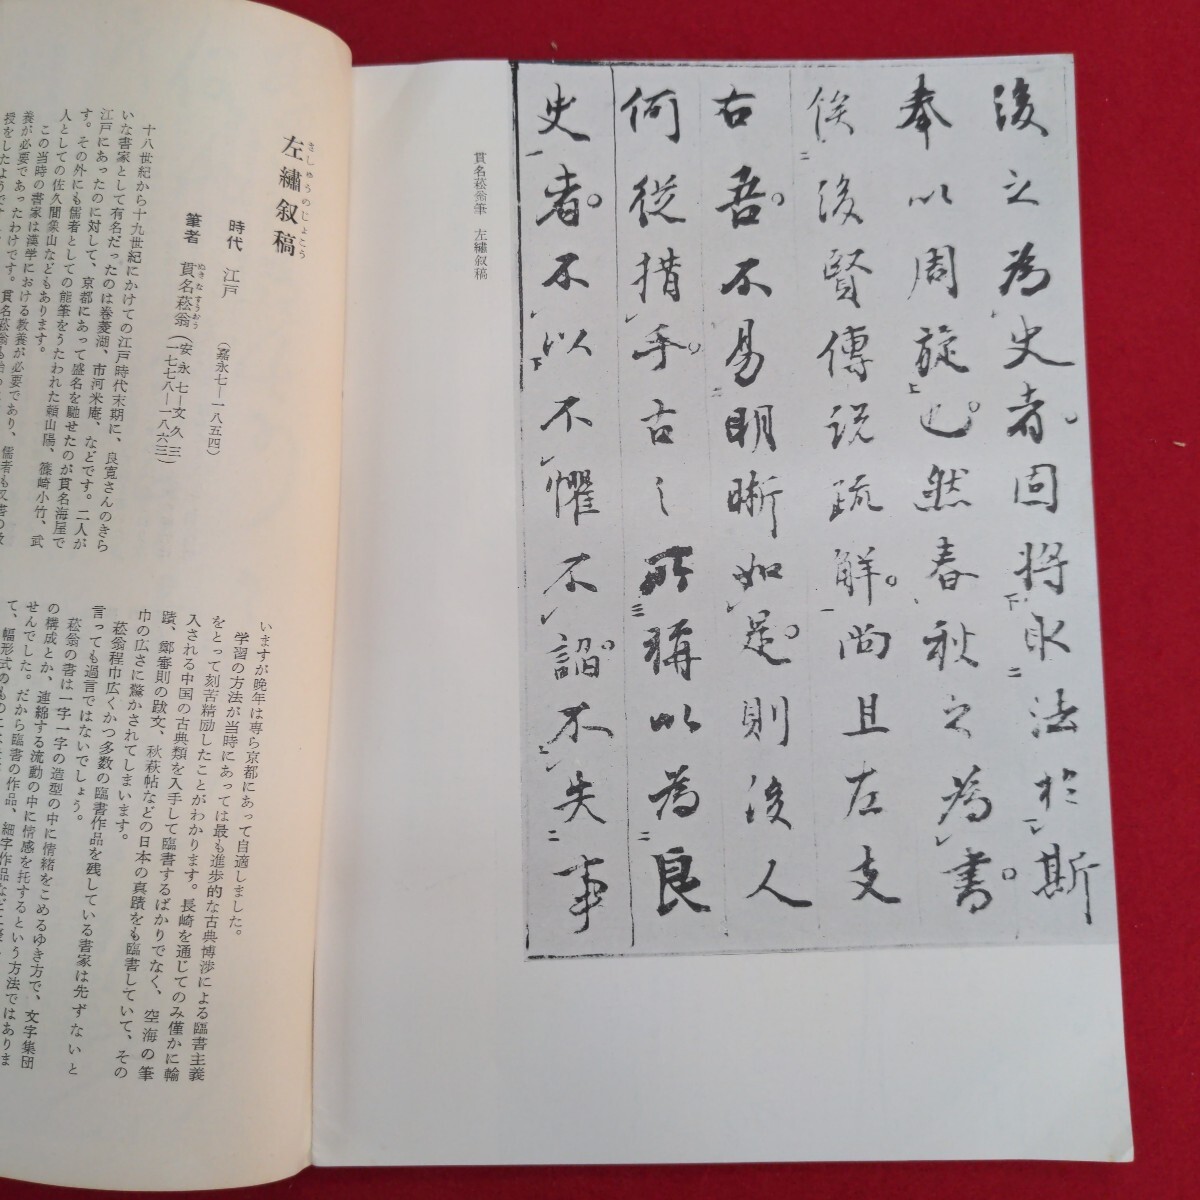 後之為史者固将永法於斯
奉以周旋也然春秋之為書
俟後賢傳説疏解尚且左支
右吾不易明晰如是則後人
何從措手古之所稱以為良
史者不以不懼不諂不失事
貫名菘翁筆　左繡叙稿
左繡叙稿
さしゅうのじょこう
時代　江戸　（嘉永七―一八五四）
筆者　貫名菘翁（安永七―文久三
ぬきなすうおう
一七七八―一八六三）
十八世紀から十九世紀にかけての江戸時代末期に、良寛さんのきら
いな書家として有名だったのは巻菱湖、市河米庵、などです。二人が
江戸にあったのに対して、京都にあって盛名を馳せたのが貫名海屋で
す。その外にも儒者としての能筆をうたわれた頼山陽、篠崎小竹、武
人としての佐久間象山などもあります。
この当時の書家は漢学における教養が必要であり、儒者も又書の教
養が必要であったわけです。貫名菘翁も
授をしたようです
いますが晩年は専ら京都にあって自適しました。
学習の方法が当時にあっては最も進歩的な古典博渉による臨書主義
をとって刻苦精励したことがわかります。長崎を通じてのみ僅かに輸
入される中国の古典類を入手して臨書するばかりでなく、空海の筆
蹟、鄭審則の跋文、秋萩帖などの日本の真蹟をも臨書していて、その
巾の広さに驚かされてしまいます。
菘翁程巾広くかつ多数の臨書作品を残している書家は先ずないと
言っても過言ではないでしょう。
菘翁の書は一字一字の造型の中に情緒をこめるゆき方で、文字集団
の構成とか、連綿する流動の中に情感を托するという方法ではありま
せんでした。だから臨書の作品、細字作品など
て、幅形式のもの